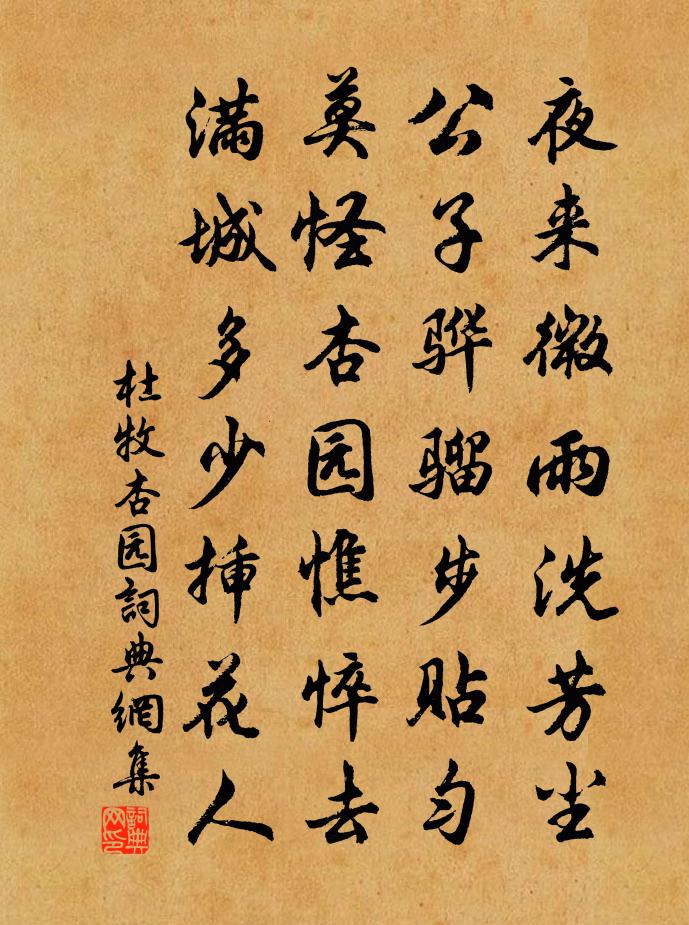 夜来微雨洗芳尘
公子骅骝步贴匀
莫怪杏园憔悴去
满城多少插花人
杜牧杏园詞典網集
詞典网印